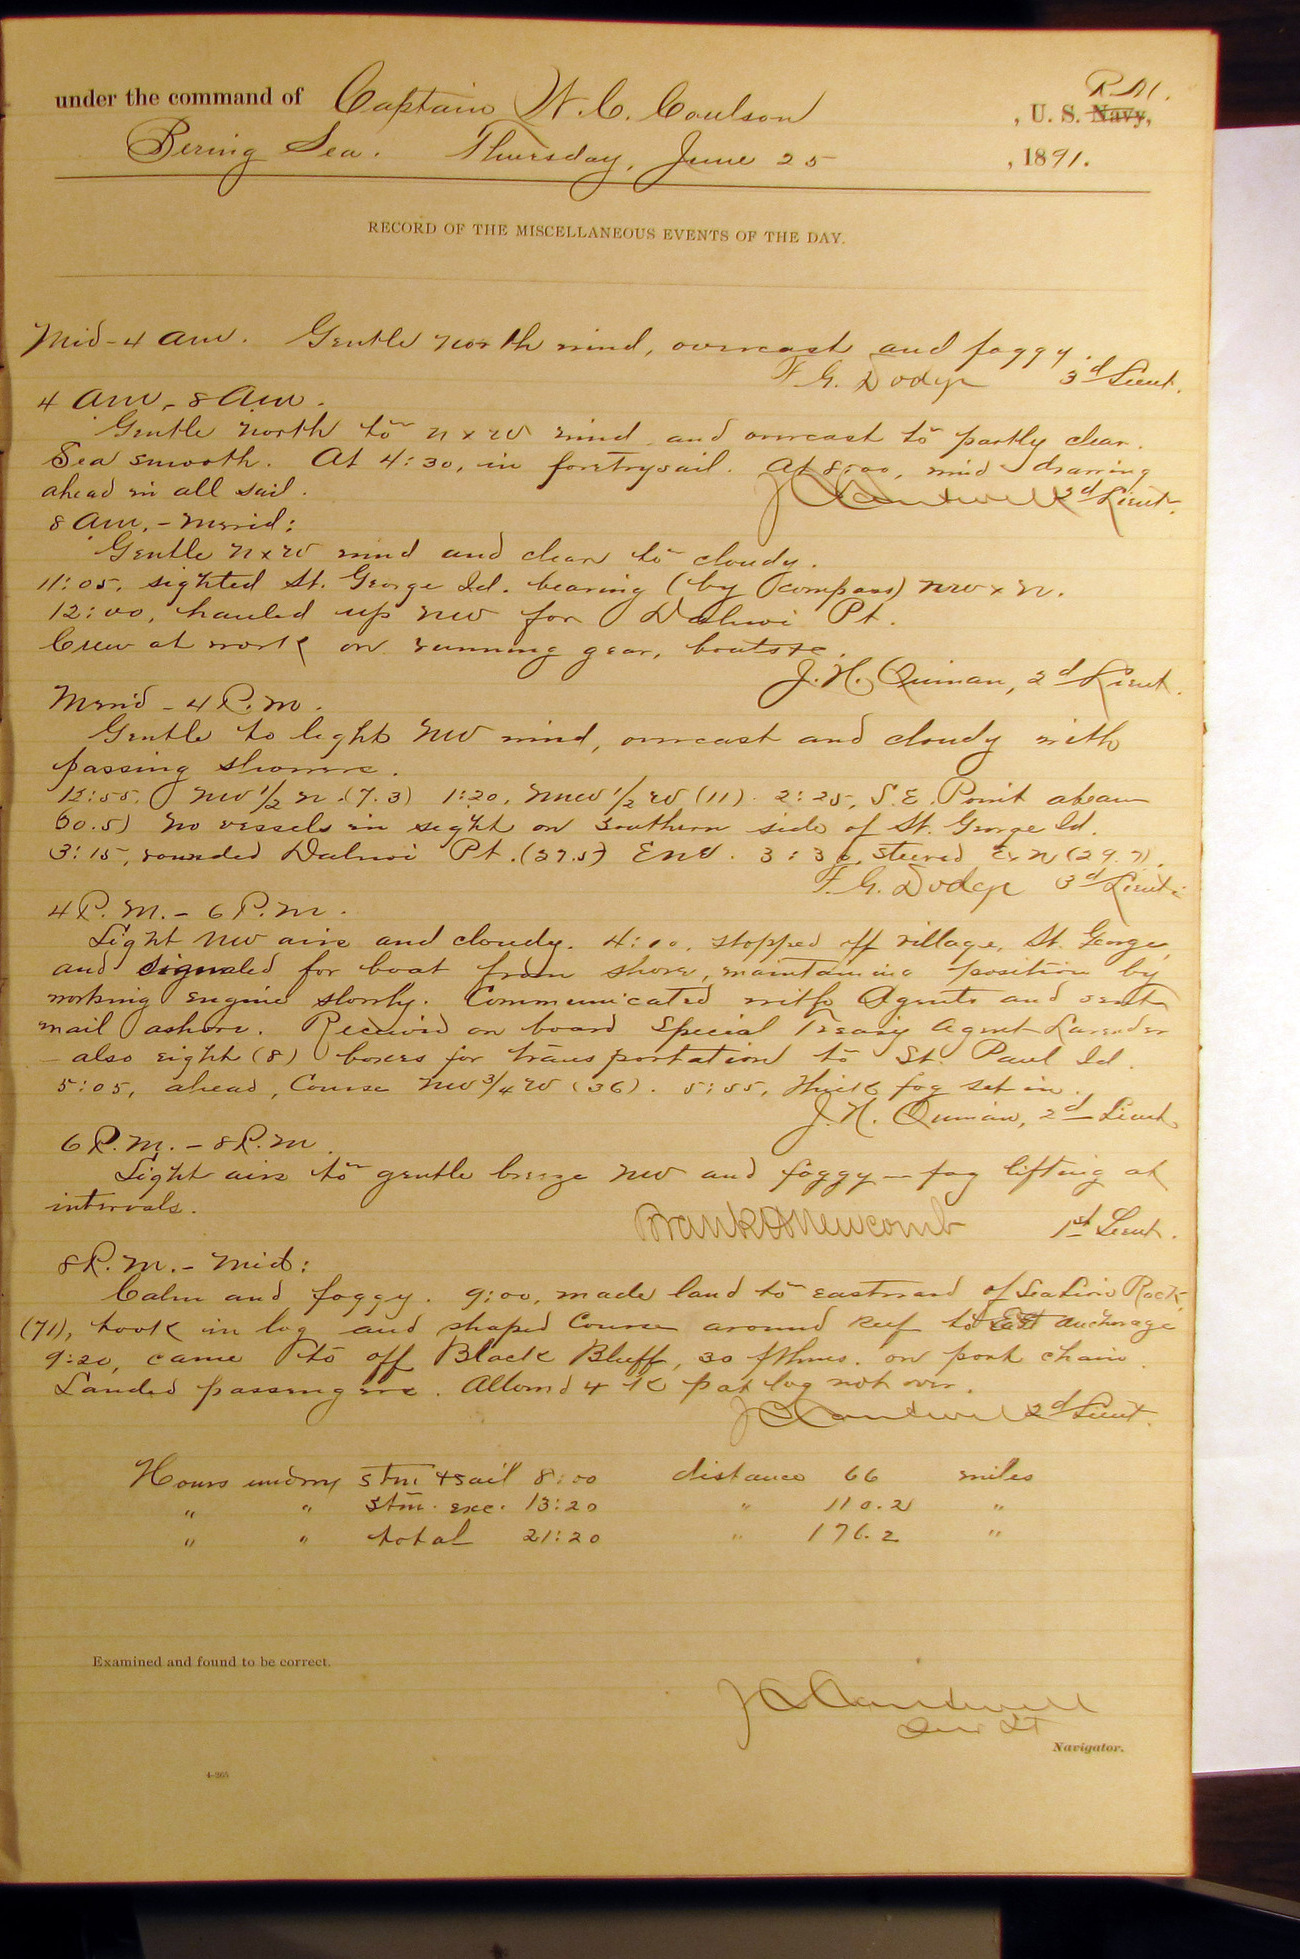 under the command of Captain W. C. Coulson , U. S. Navy, R. M.
Bering Sea. Thursday, June 25 , 1891.
RECORD OF THE MISCELLANEOUS EVENTS OF THE DAY.
Mid - 4 am. Gentle North wind, overcast and foggy.
F. G. Dodge 3d Lieut.
4 am - 8 am.
Gentle north to n x w wind and overcast to partly clear.
Sea smooth. At 4:30, in foretrysail. At 8:00, wind drawing
ahead in all sail.
J C Cantwell 2d Lieut.
8 am. - Merid:
Gentle n x w wind and clear to cloudy.
11:05, sighted St. George Id. bearing (by compass) nw x n.
12:00, hauled up nw for Dalnoi Pt.
Crew at work on running gear, boats &c.
J. H. Quinan, 2d Lieut.
Merid - 4 P.m.
Gentle to light NW wind, overcast and cloudy with
passing showers.
12:55, NW 1/2 n. (7.3) 1:20, NNW 1/2 W (11) 2:25, S.E. Point abeam
No vessels in sight on southern side of St. George Id.
3:15, rounded Dalnoi Pt. (27.5) 3:30, steered E x N (29.7).
F. G. Dodge 3d Lieut.
4 P. M. - 6 P. m.
Light NW airs and cloudy. 4:10, stopped off village, St. George,
and signaled for boat from shore, maintaining position by
working engine slowly. Communicated with Agents and sent
mail ashore. Received on board Special Treasy Agent Lavender
- also eight (8) boxes for transportation to St. Paul Id.
5:05, ahead, Course NW 3/4 W (36). 5:55, thick fog set in.
J. H. Quinan, 2d Lieut.
6 P. M. - 8 P. M.
Light airs to gentle breeze NW and foggy - fog lifting at
intervals.
Frank H Newcomb 1st Lieut.
8 P. M. - Mid:
Calm and foggy. 9:00, made land to eastward of Sealion Rock,
(71), took in log and shaped Course around Reef to East anchorage
9:20, came to off Black Bluff, 30 fthms. on port chain.
Landed passengers. Allowed 4 K pat log not over.
J C Cantwell 2d Lieut.
Hours underway stm & sail 8:00 distance 66 miles
" " stm. exc. 13:20 " 110.2 "
" " total 21:20 " 176.2 "
Examined and found to be correct.
J C Cantwell
Navigator.
4-265